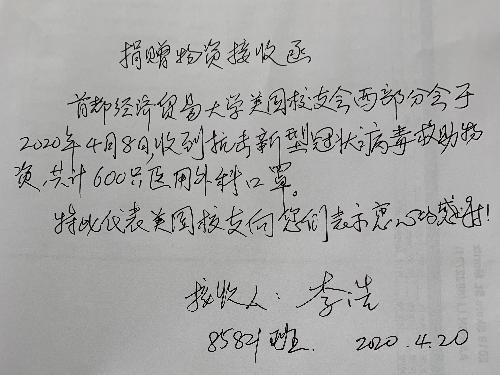 捐赠物资接收函
首都经济贸易大学美国校友会西部分会于
2020年4月8日,收到抗击新型冠状病毒救助物
资,共计600只医用外科口罩。
特此代表美国校友向您们表示衷心的感谢!
接收人:李浩
8582班 2020.4.20